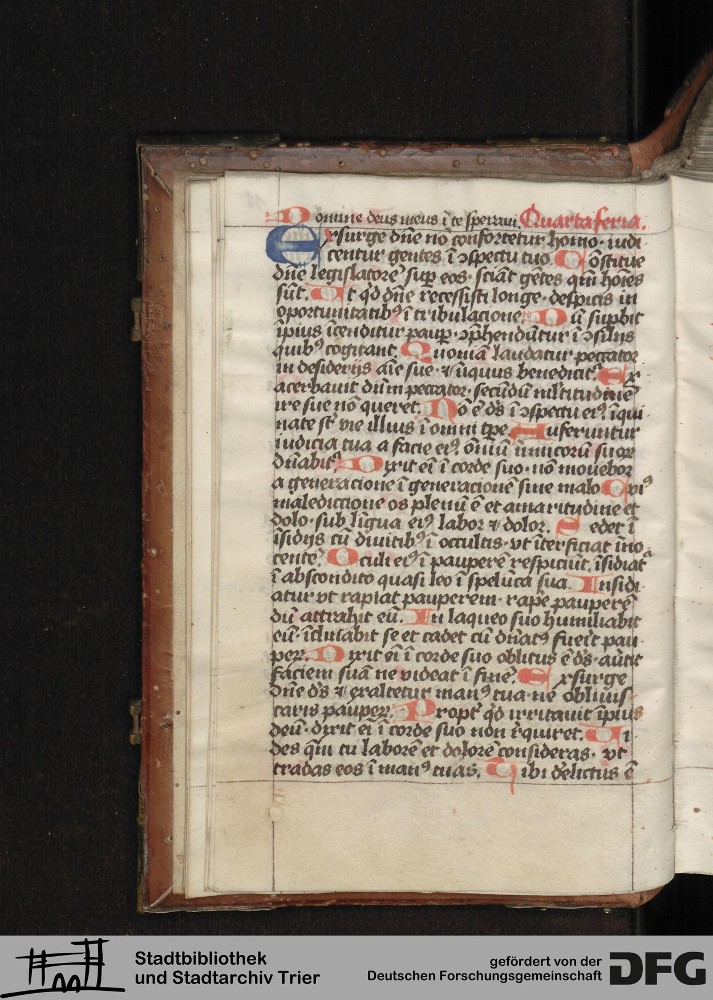 Domine deus meus ī te speraui. Quarta feria.
Exsurge dn̄e nō confortetur homo · iudi
centur gentes ī ɔspectu tuo. Cōstitue
dn̄e legislatorē sup̄ eos · sciāt gētes qm̄ hoīes
sūt. Ut qd dn̄e recessisti longe · despicis in
oportunitatibꝰ ī tribulacione. Dū supbit
īpius īcenditur paup̄ · ɔphendūtur ī ɔsilijs
quibꝰ cogitant. Quoniā laudatur peccator
in desiderijs aīe sue · ⁊ iniquus benedicit᷑. Ex
acerbauit dn̄m peccator · secūdū ml'titudinē
ire sue nō queret. Nō ē ds̄ ī ɔspectu eiꝰ · īqui
nate st̄ vie illius ī omni tp̄e. Auferuntur
iudicia tua a facie eiꝰ · oīm̄ inimicorū suoꝝ
dn̄abit᷑. Dixit eī ī corde suo · nō mouebor
a generacione ī generacionē sine malo. Cuiꝰ
malediccione os plenū ē et amaritudine et
dolo · sub līgua eiꝰ labor ⁊ dolor. Sedet ī
īsidijs cū diuitibꝰ ī occultis · vt īterficiat īno
centē. Oculi eiꝰ ī pauperē respiciūt · īsidiat᷑
ī abscondito quasi leo ī spelūca sua. Insidi
atur vt rapiat pauperem · rape pauperē
dū attrahit eū. In laqueo suo humiliabit
eū · īclinabit se et cadet cū dn̄atꝰ fueīt pau
perꝝ. Dixit eī ī corde suo oblitus ē ds̄ · aūtit
faciem suā ne videat ī finē. Exsurge
dn̄e ds̄ ⁊ exaltetur manꝰ tua · ne obliuis
caris pauperꝝ. Propt᷑ qd irritauit īpius
deū · dixit eī ī corde suo non rēquiret. Ui
des qm̄ tu laborē et dolorē consideras · vt
tradas eos ī manꝰ tuas. Tibi derelictus ē
Stadtbibliothek
und Stadtarchiv Trier
gefördert von der
Deutschen Forschungsgemeinschaft
DFG